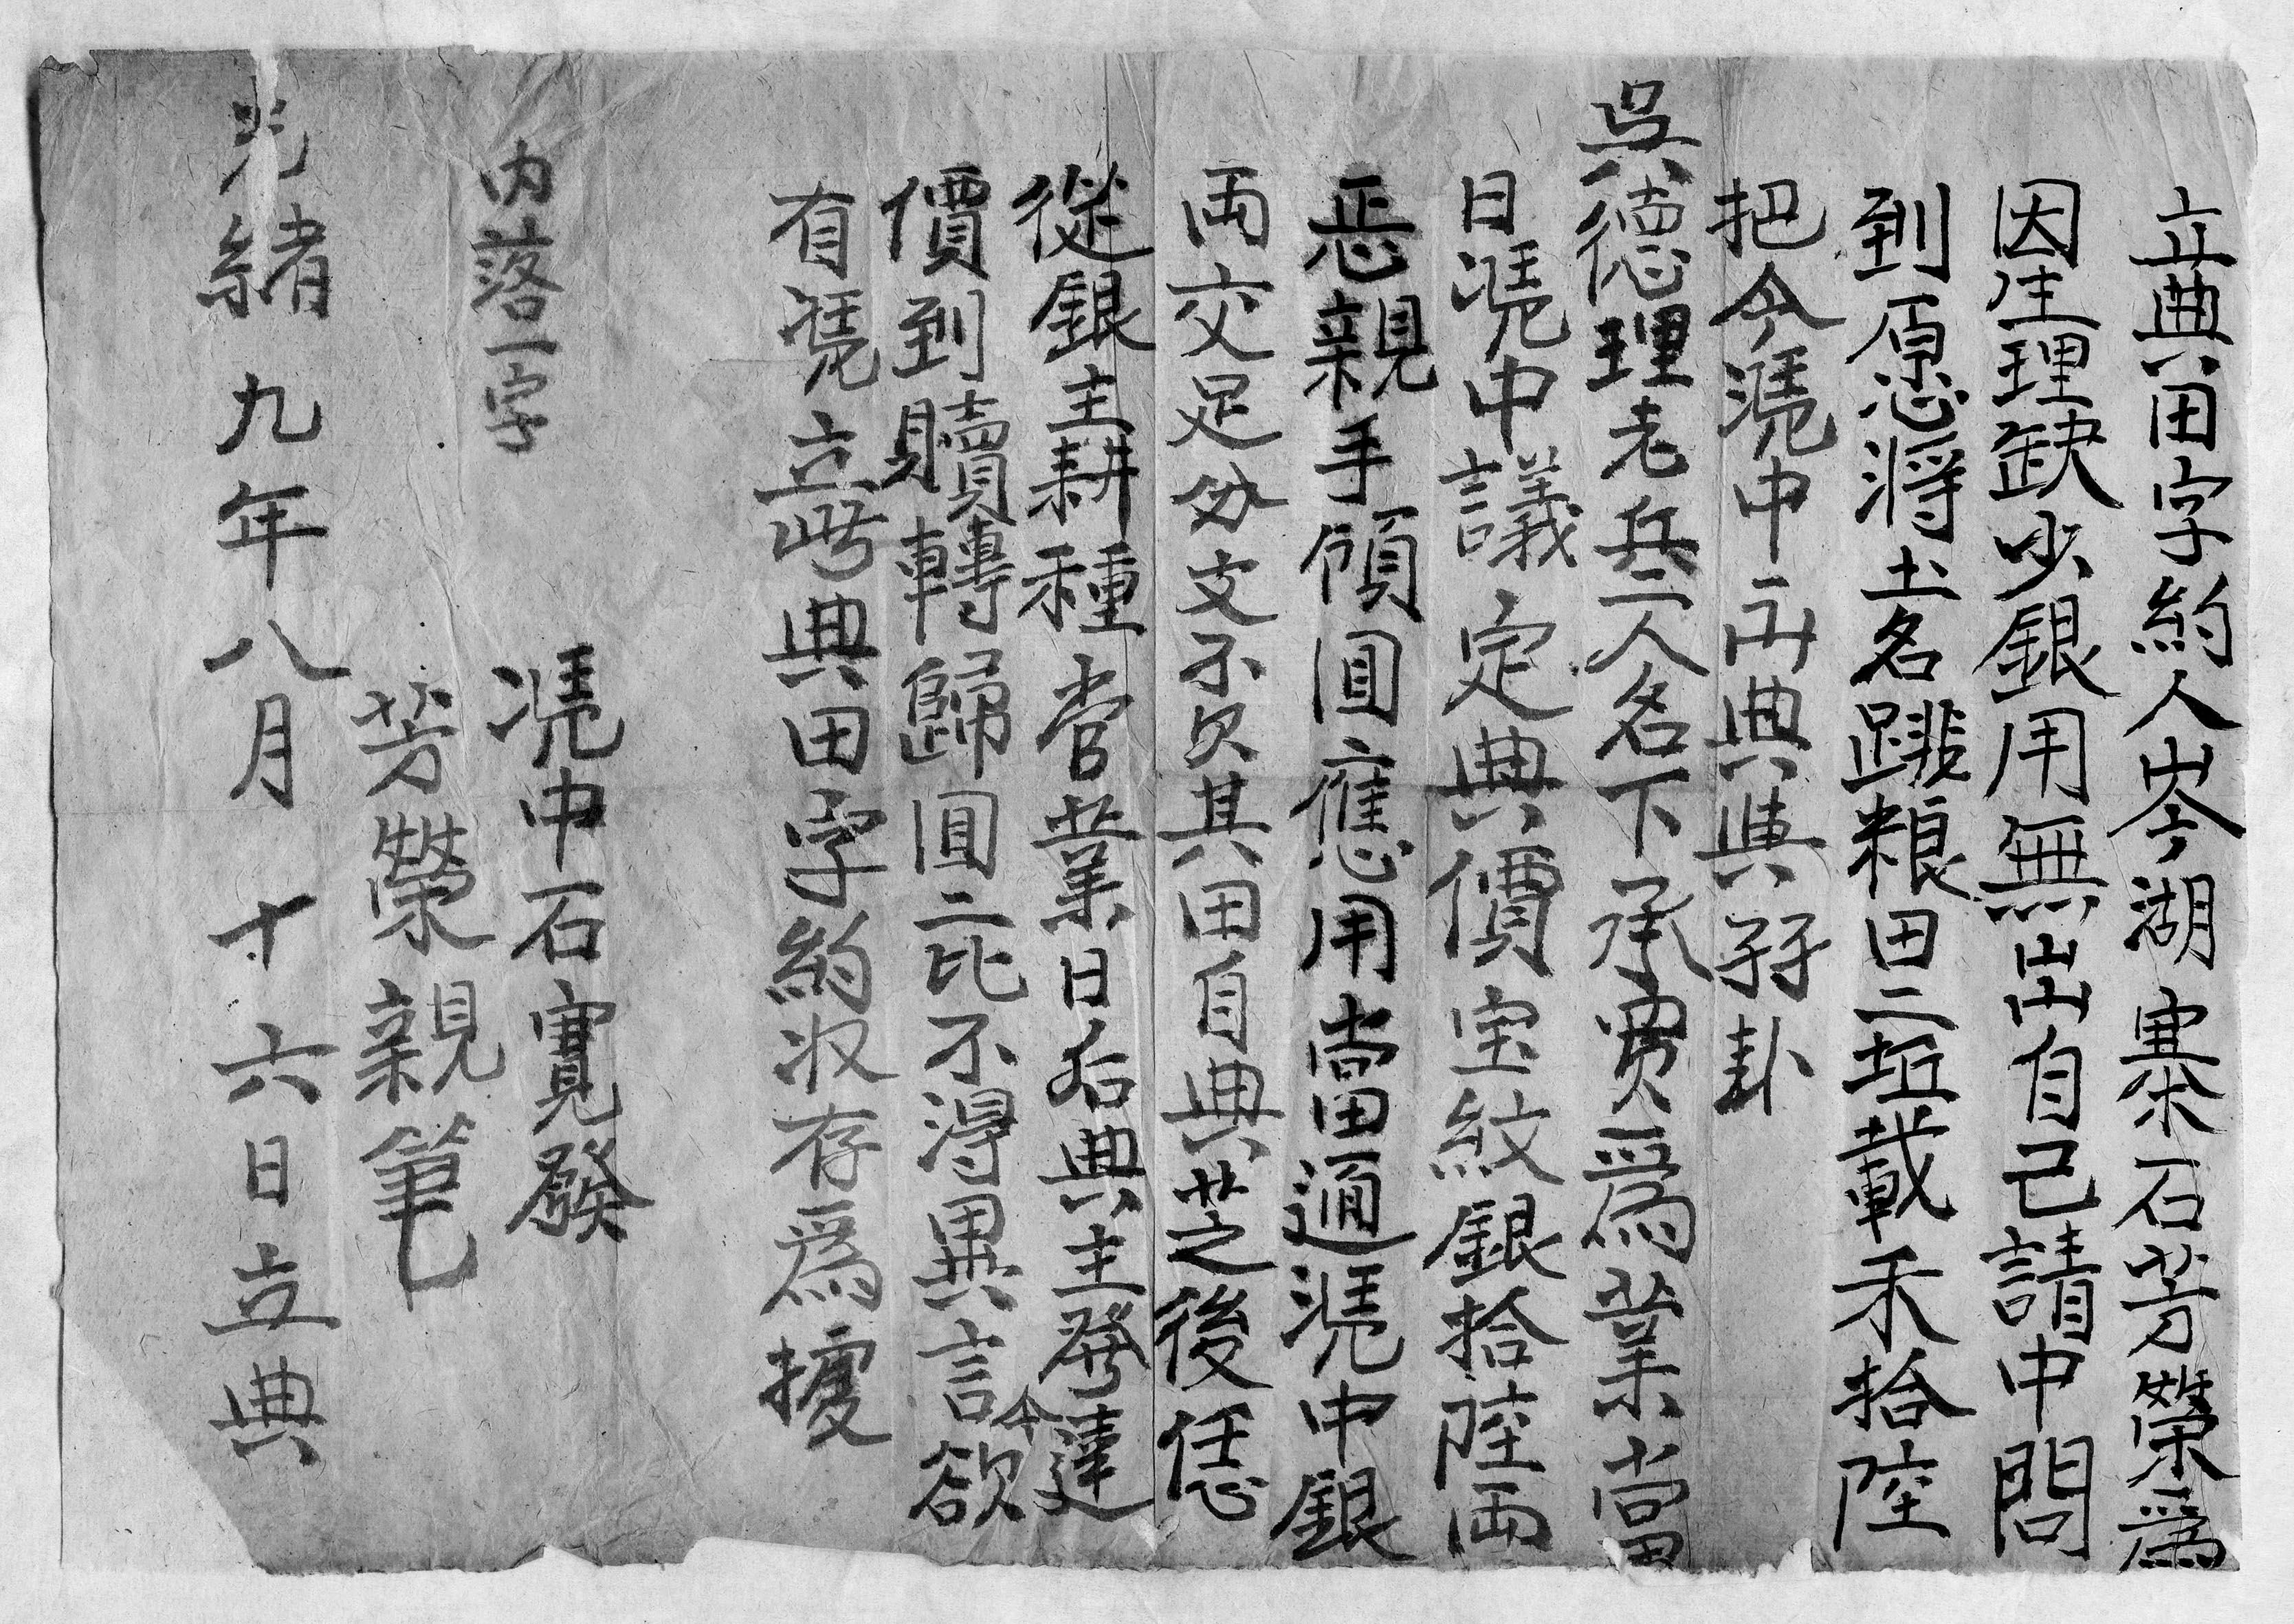 立典田字約人岑湖寨石芳榮爲
因生理缺少銀用無出自己請中問
到愿將土名 粮田二坵載禾拾陸
把今凴中二面典與 卦
吳德理老兵二人名下承買爲業當
日凴中議定典價宝紋銀拾陸両
恶親手領囬應用當通凴中銀
両交足分文不欠其田自典芝後任憑
從銀主耕種管業日后典主發達
價到贖轉歸囬二比不得異言今欲
有凴立此典田字約収存爲據
内落一字
凴中石寬發
芳榮親筆
光緒九年八月十六日立典